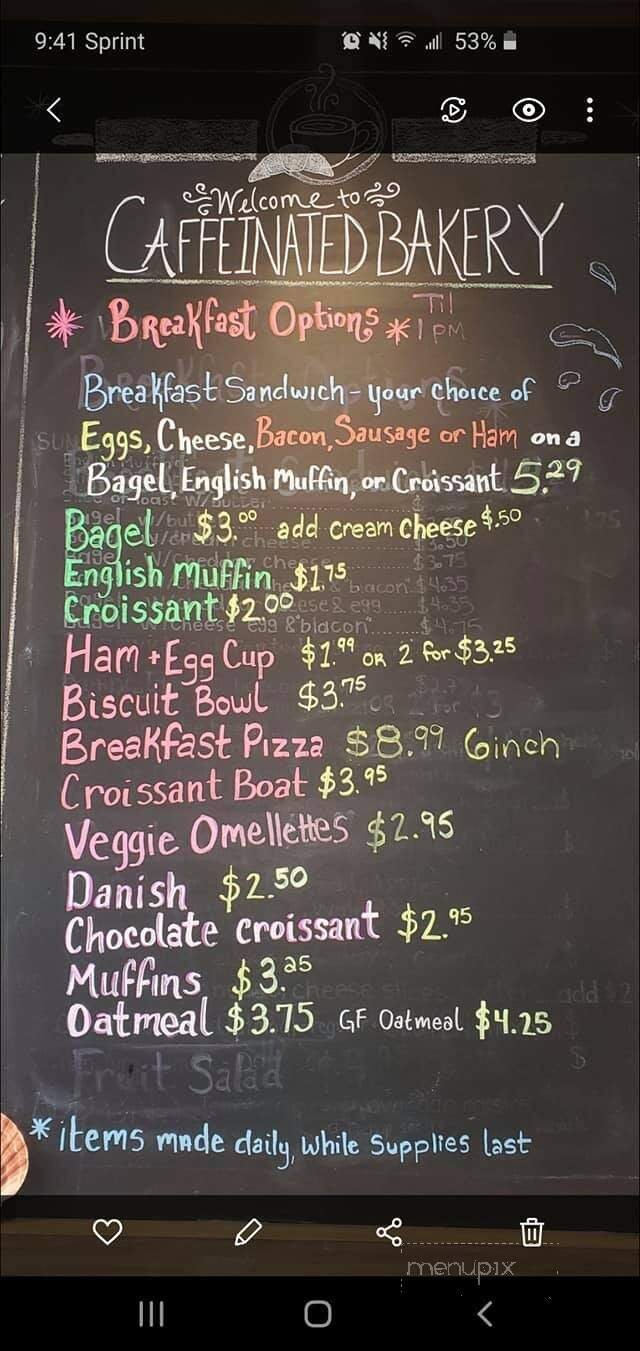 9:41 Sprint 53%
Welcome to
CAFFEINATED BAKERY
* Breakfast Options * Til 1 PM
Breakfast Sandwich - your choice of
Eggs, Cheese, Bacon, Sausage or Ham on a
Bagel, English Muffin, or Croissant 5.29
Bagel $3.00 add cream cheese $.50
English Muffin $1.75
Croissant $2.00
Ham + Egg Cup $1.99 OR 2 for $3.25
Biscuit Bowl $3.75
Breakfast Pizza $8.99 6inch
Croissant Boat $3.95
Veggie Omellettes $2.95
Danish $2.50
Chocolate croissant $2.95
Muffins $3.25
Oatmeal $3.75 GF Oatmeal $4.25
Fruit Salad
*items made daily, while supplies last
menupix